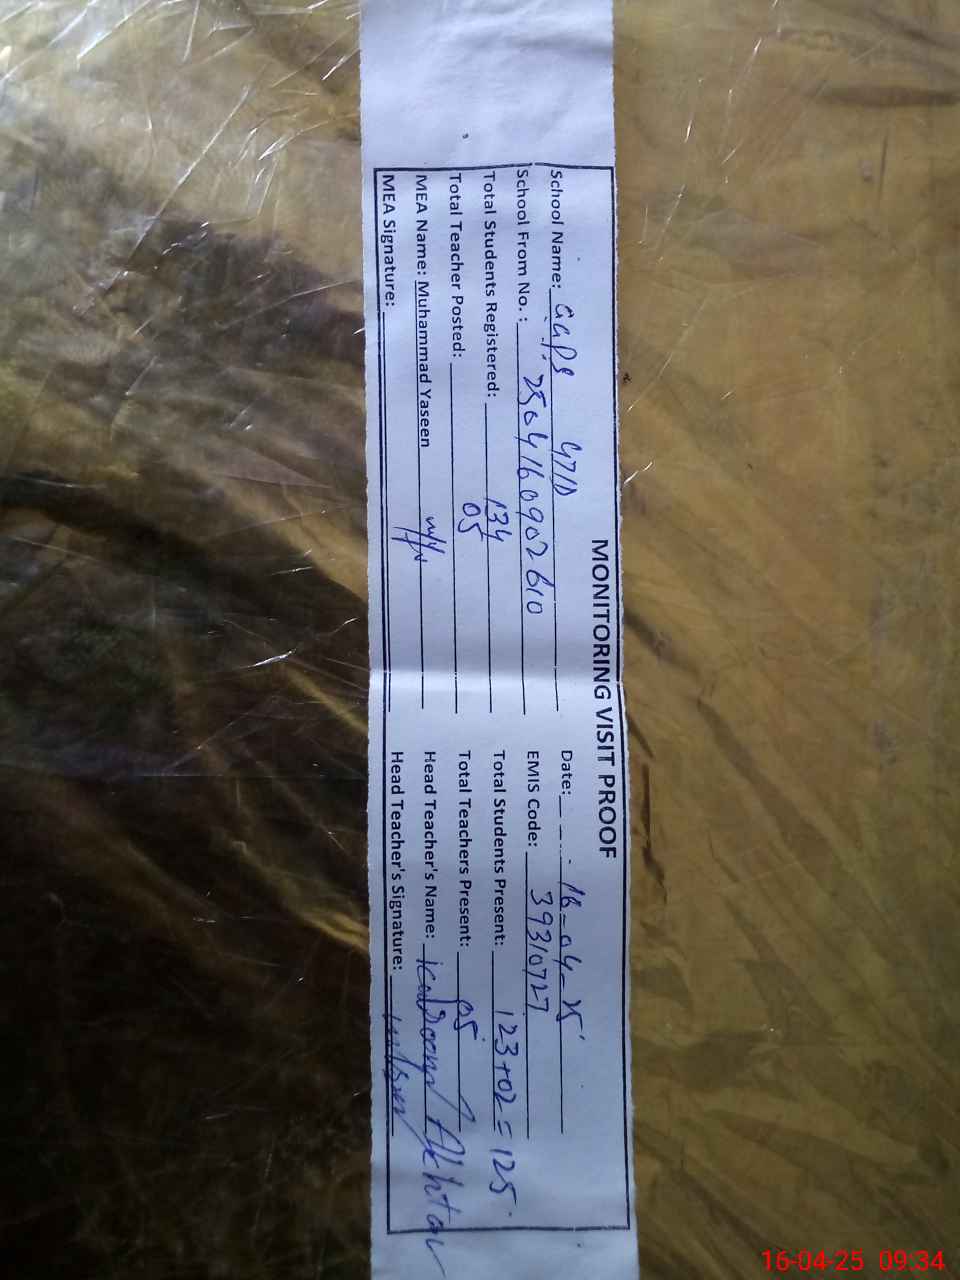 MONITORING VISIT PROOF
School Name: GGPS 47/D Date: 16-04-25
School From No.: 2504160902610 EMIS Code: 39310727
Total Students Registered: 134 Total Students Present: 123+02=125
Total Teacher Posted: 05 Total Teachers Present: 05
MEA Name: Muhammad Yaseen Head Teacher's Name: Akhtar
MEA Signature: Head Teacher's Signature:
16-04-25 09:34